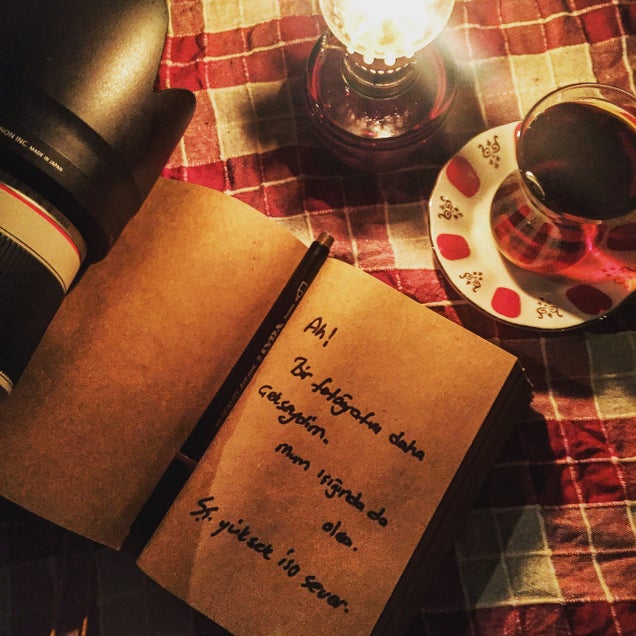 NON INC. MADE IN JAPAN
Ah!
Bir fotoğrafın daha
Gelseydim.
Mum Işığında da
olsa.
yüksek iso sever.